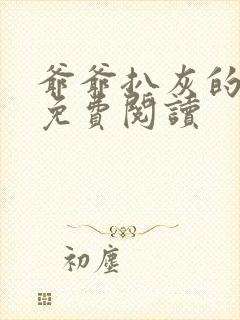 爺爺扒灰的
免費閱讀
初塵